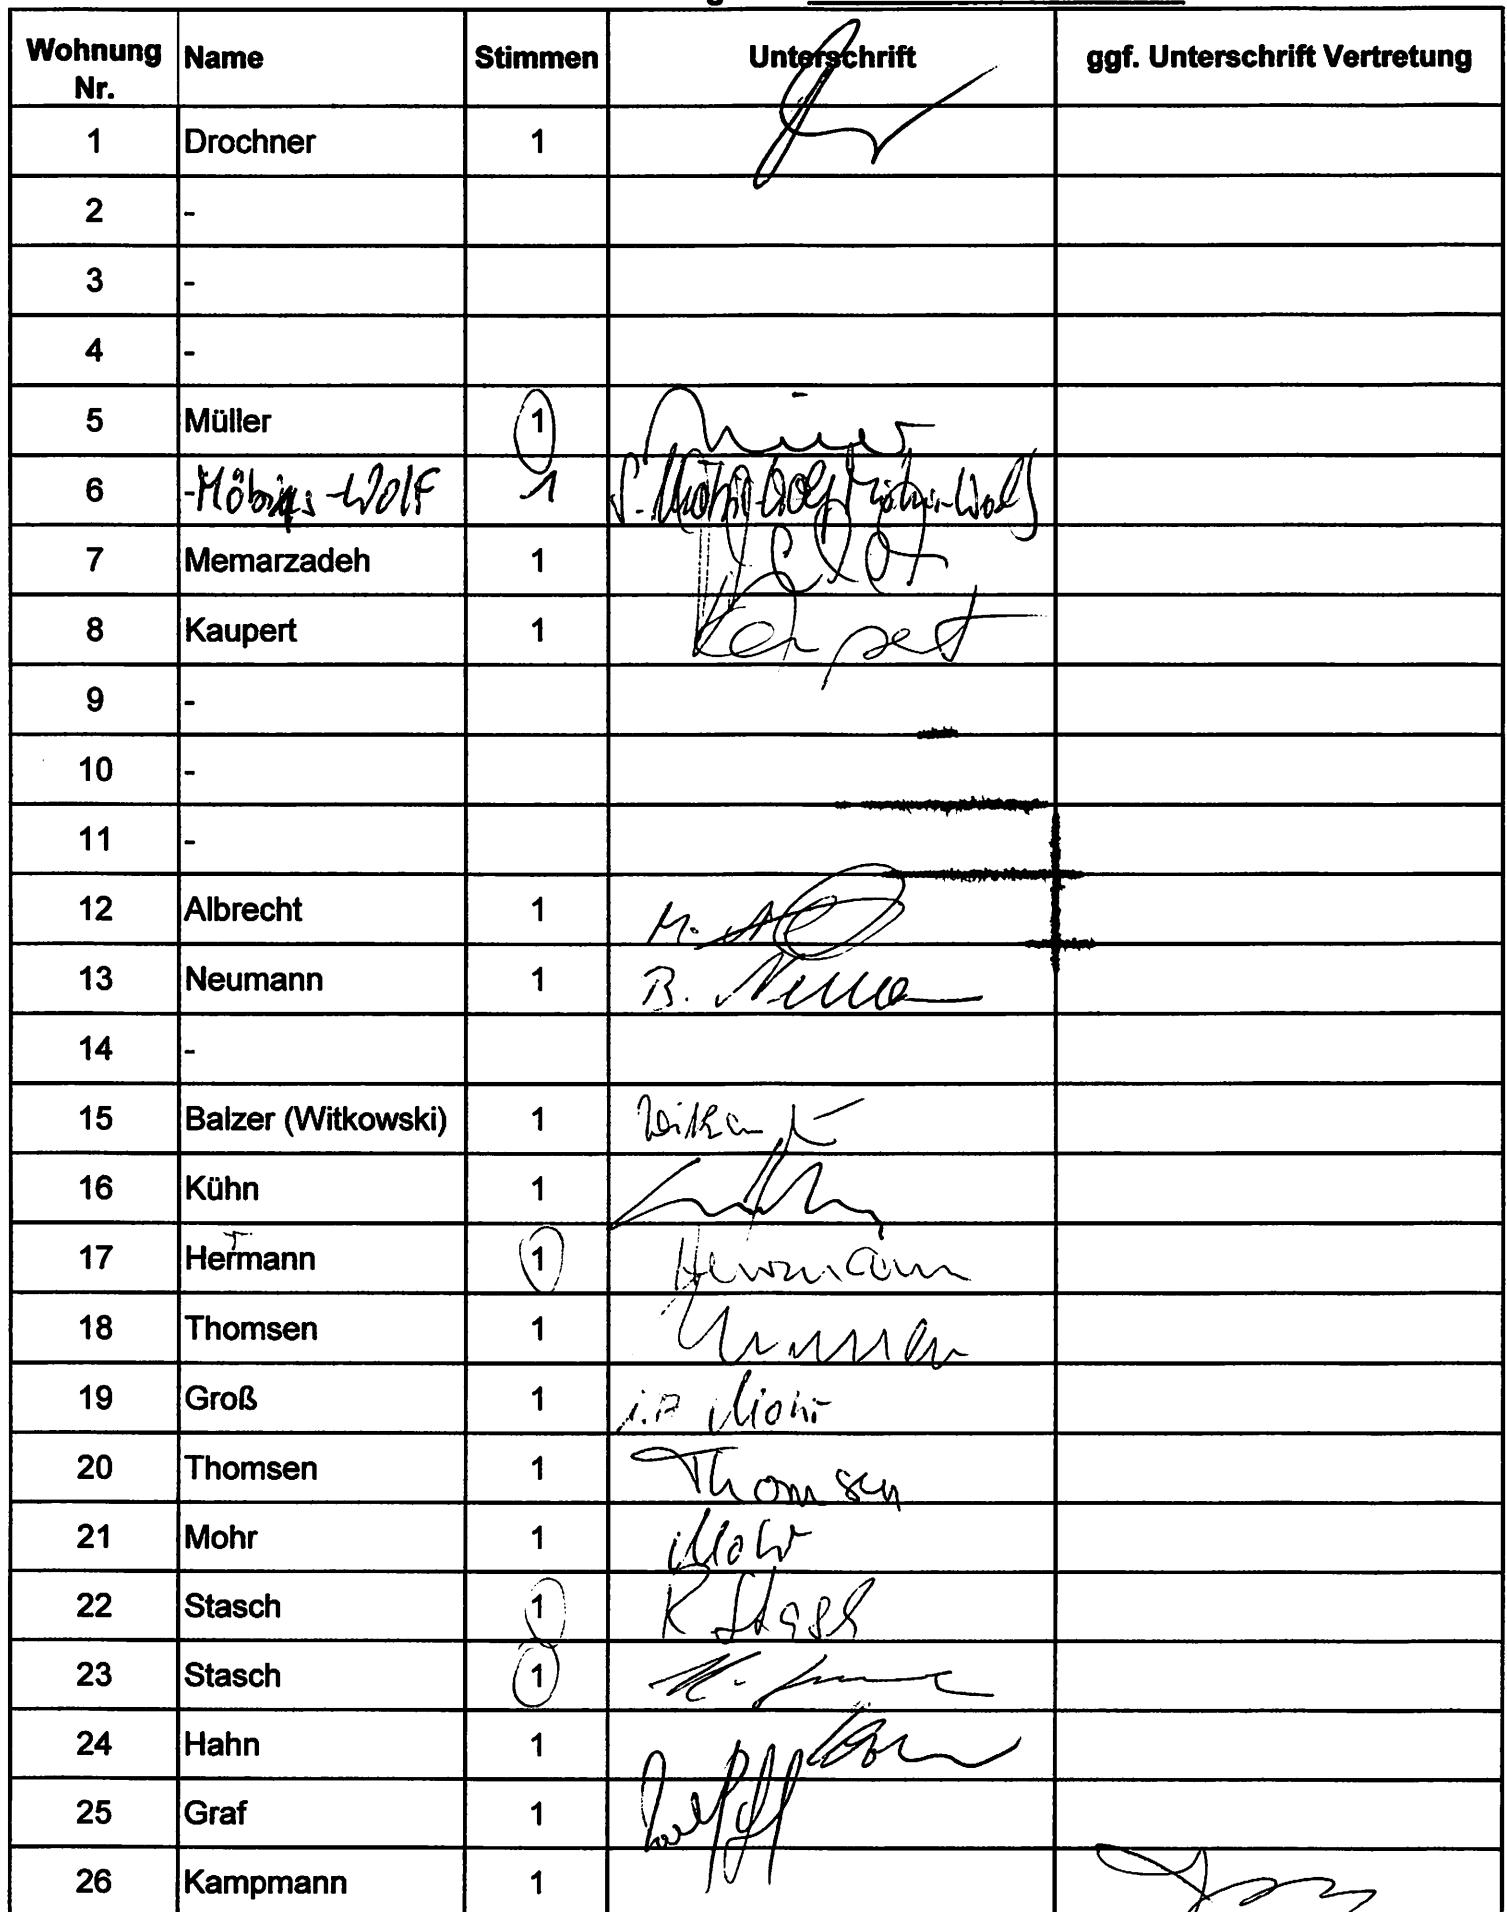 Wohnung Nr. Name Stimmen Unterschrift ggf. Unterschrift Vertretung
1 Drochner 1
2 -
3 -
4 -
5 Müller 1
6 -Möbius-Wolf 1
7 Memarzadeh 1
8 Kaupert 1 Kaupert
9 -
10 -
11 -
12 Albrecht 1 M.
13 Neumann 1 B.
14 -
15 Balzer (Witkowski) 1
16 Kühn 1
17 Hermann 1 Herrmann
18 Thomsen 1
19 Groß 1 Mohr
20 Thomsen 1 Thomsen
21 Mohr 1 Mohr
22 Stasch 1 R Stasch
23 Stasch 1
24 Hahn 1
25 Graf 1
26 Kampmann 1